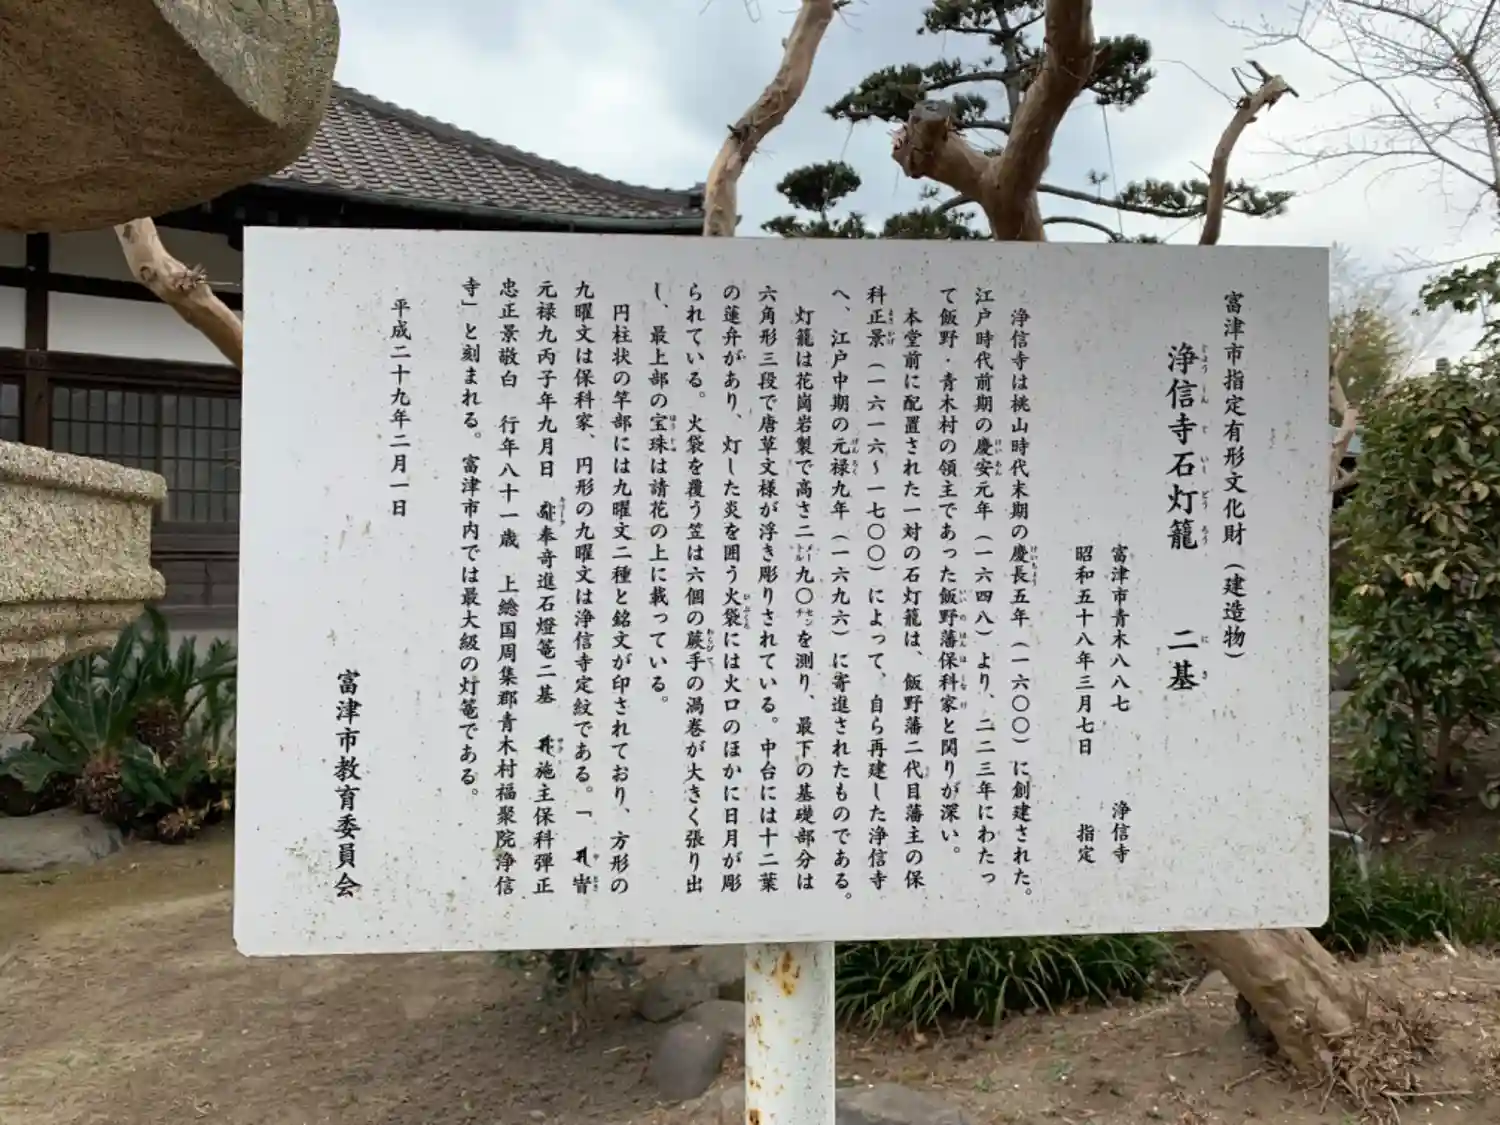 富津市指定有形文化財（建造物）
浄信寺石灯籠　二基
富津市青木八八七　浄信寺
昭和五十八年三月七日　指定
浄信寺は桃山時代末期の慶長五年（一六〇〇）に創建された。
江戸時代前期の慶安元年（一六四八）より、二二三年にわたっ
て飯野・青木村の領主であった飯野藩保科家と関りが深い。
本堂前に配置された一対の石灯籠は、飯野藩二代目藩主の保
科正景（一六一六～一七〇〇）によって、自ら再建した浄信寺
へ、江戸中期の元禄九年（一六九六）に寄進されたものである。
灯籠は花崗岩製で高さ二メートル九〇センチを測り、最下の基礎部分は
六角形三段で唐草文様が浮き彫りされている。中台には十二葉
の蓮弁があり、灯した炎を囲う火袋には火口のほかに日月が彫
られている。火袋を覆う笠は六個の蕨手の渦巻が大きく張り出
し、最上部の宝珠は請花の上に載っている。
円柱状の竿部には九曜文二種と銘文が印されており、方形の
九曜文は保科家、円形の九曜文は浄信寺定紋である。「
元禄九丙子年九月日　奉竒進石燈篭二基　施主保科弾正
忠正景敬白　行年八十一歳　上総国周集郡青木村福聚院浄信
寺」と刻まれる。富津市内では最大級の灯篭である。
平成二十九年二月一日
富津市教育委員会